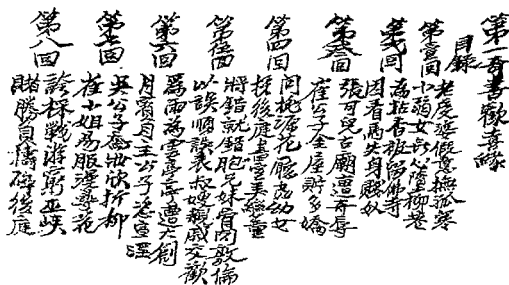 第一奇書歡喜緣
目錄
第壹回
老虔婆假意撫孤寡
小弱女誤入墮柳巷
第弍回
為拈香被留佛寺
因看馬失身賤奴
第叁回
張可兒古廟遭奇辱
崔公子金屋貯多嬌
第四回
問桃源花廳戲幼女
探後庭書室美孌童
第伍回
將錯就錯胞兄妹實閙敦倫
以誤順誤表叔嫂親戚交歡
第六回
為雨為雲書喜遭大創
月賓月主公子恣宣淫
第七回
吳公子卷妝欣折柳
崔小姐易服漫尋花
第八回
誇採戰游窮巫峽
賭勝負檮碎後庭